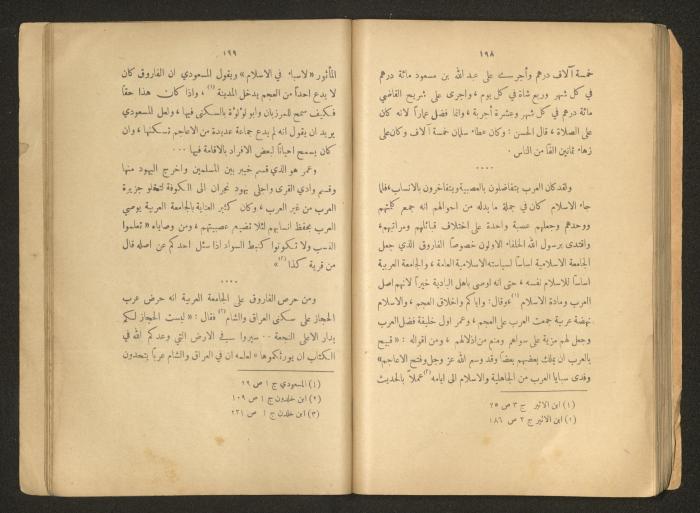 ١٩٨
خمسة آلاف درهم وأجرى على عبد الله بن مسعود مائة درهم
في كل شهر وربع شاة في كل يوم، واجرى على شريح القاضي
مائة درهم في كل شهر وعشرة أجربة، وانما فضل عماراً لانه كان
على الصلاة، قال الحسن: وكان عطاء سلمان خمسة آلاف وكان على
زهاء ثمانين الفاً من الناس.
....
ولقد كان العرب يتفاضلون بالعصبية ويتفاخرون بالانساب، فلما
جاء الاسلام كان في جملة ما بدله من احوالهم انه جمع كلمتهم
ووحدهم وجعلهم عصبة واحدة على اختلاف قبائلهم ومراتبهم،
واقتدى برسول الله الخلفاء الاولون خصوصاً الفاروق الذي جعل
الجامعة الاسلامية اساساً لسياسته الاسلامية العامة، والجامعة العربية
اساساً للاسلام نفسه، حتى انه اوصى باهل البادية خيراً لانهم اصل
العرب ومادة الاسلام (١)، وقال: واياكم واخلاق العجم، والاسلام
نهضة عربية جمعت العرب على العجم، وعمر اول خليفة فضل العرب
وجعل لهم مزية على سواهم ومنع من اذلالهم، ومن اقواله: «قبيح
بالعرب ان يملك بعضهم بعضاً وقد وسع الله عز وجل وفتح الاعاجم»
وفدى سبايا العرب من الجاهلية والاسلام الى ايامه (٢) عملاً بالحديث
(١) ابن الاثير ج ٣ ص ٢٥
(٢) ابن الاثير ج ٢ ص ١٨٦
١٩٩
المأثور «لاسباء في الاسلام» ويقول المسعودي ان الفاروق كان
لا يدع احداً من العجم يدخل المدينة (١)، واذا كان هذا حقاً
فكيف سمح للمرزبان وابو لؤلؤة بالسكنى فيها، ولعل المسعودي
يريد ان يقول انه لم يدع جماعة عديدة من الاعاجم تسكنها، وان
كان يسمح احياناً لبعض الافراد بالاقامة فيها ...
وعمر هو الذي قسم خيبر بين المسلمين واخرج اليهود منها
وقسم وادي القرى واجلى يهود نجران الى الكوفة لتخلو جزيرة
العرب من غير العرب، وكان كثير العناية بالجامعة العربية يوصي
العرب بحفظ انسابهم لئلا تضيع عصبيتهم، ومن وصاياه «تعلموا
النسب ولا تكونوا كنبط السواد اذا سئل احدكم عن اصله قال
من قرية كذا» (٢)
....
ومن حرص الفاروق على الجامعة العربية انه حرض عرب
الحجاز على سكنى العراق والشام (٣) فقال: «ليست الحجاز لكم
بدار الاعلى النجعة .. سيروا في الارض التي وعدكم الله في
الكتاب ان يورثكموها» لعلمه ان في العراق والشام عرباً يتحدون
(١) المسعودي ج ١ ص ٢٩
(٢) ابن خلدون ج ١ ص ١٠٩
(٣) ابن خلدن ج ١ ص ٢٢١